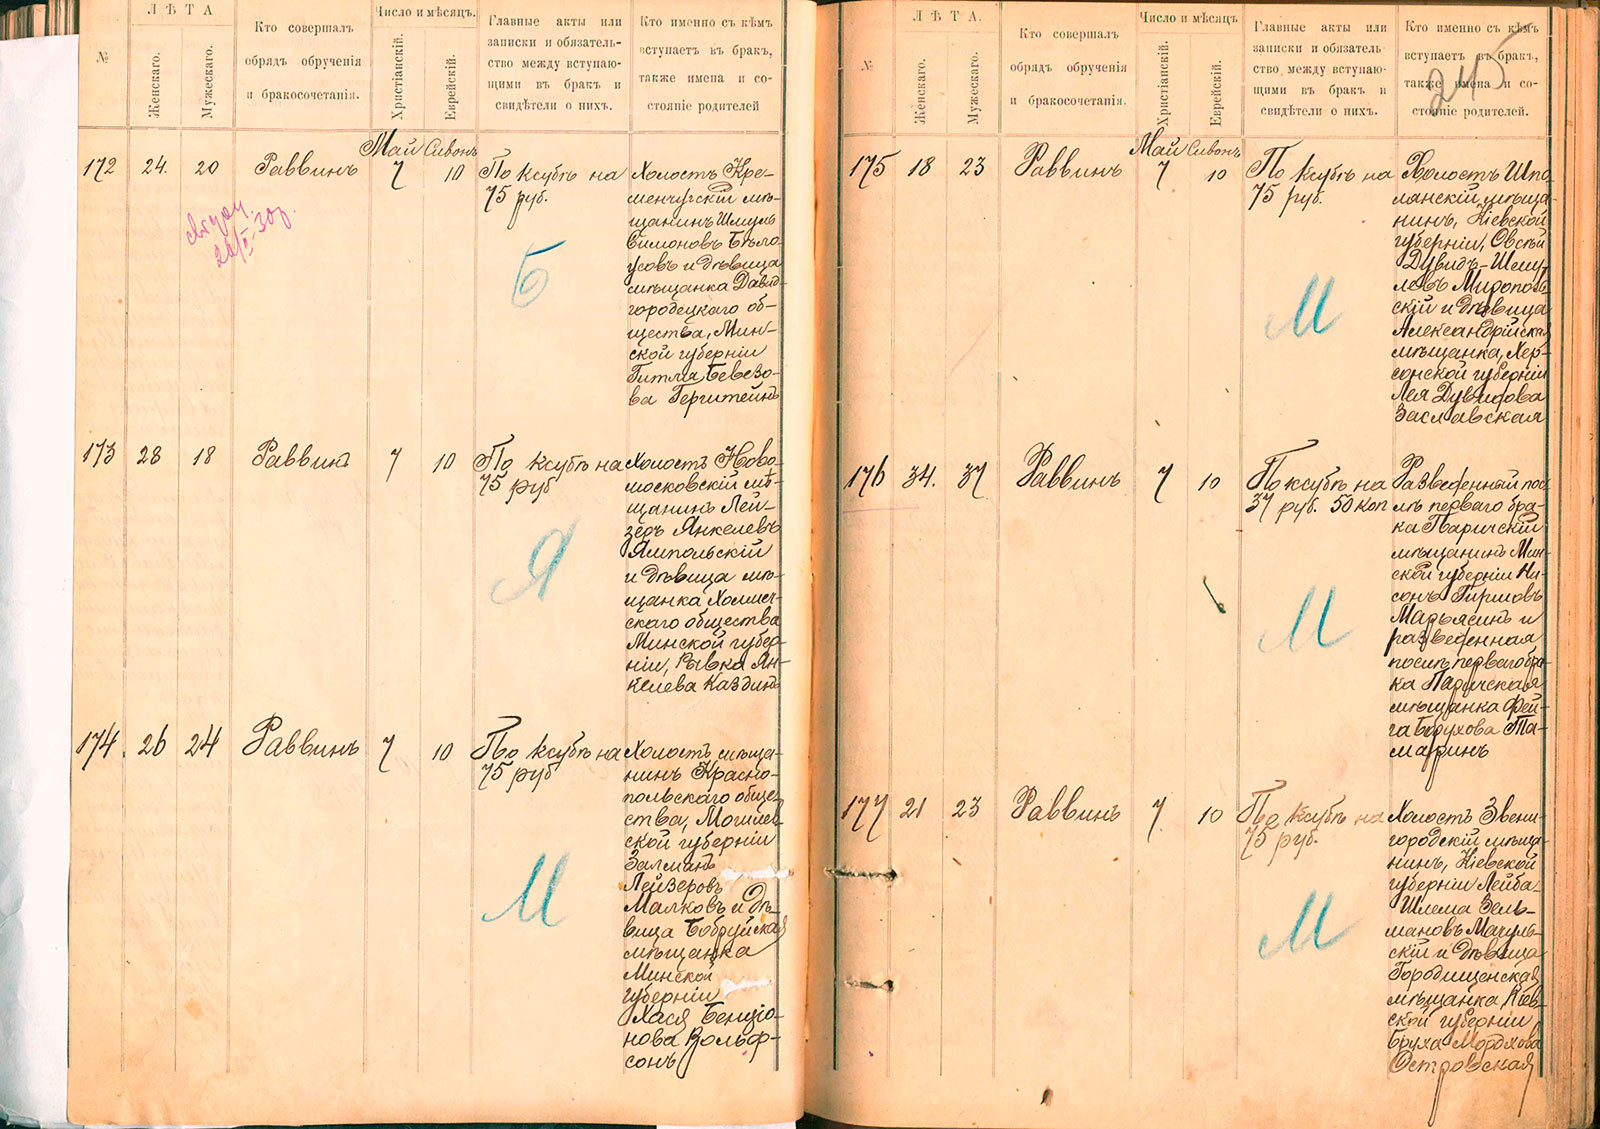 №
ЛѢТА
Женскаго.
Мужескаго.
Кто совершалъ
обрядъ обрученія
и бракосочетанія.
Число и мѣсяцъ.
Христіанскій.
Еврейскій.
Главные акты или
записки и обязатель-
ство между вступаю-
щими въ бракъ и
свидѣтели о нихъ.
Кто именно съ кѣмъ
вступаетъ въ бракъ,
также имена и со-
стояніе родителей
172
24.
20
Раввинъ
Май
7
Сивонъ
10
По ксубѣ на
75 руб.
Б
Холостъ Кре-
менчугскій мѣ-
щанинъ Шмуль
Симоновъ Бѣло-
усовъ и дѣвица
мѣщанка Давид-
городецкаго об-
щества, Мин-
ской губерніи
Гитля Бевезо-
ва Герштейнъ
173
28
18
Раввинъ
7
10
По ксубѣ на
75 руб
Я
Холостъ Ново-
московскій мѣ-
щанинъ Лей-
зеръ Янкелевъ
Ямпольскій
и дѣвица мѣ-
щанка Холмеч-
скаго общества
Минской губер-
ніи, Рывка Ян-
келева Каздинъ
174.
26
24
Раввинъ
7
10
По ксубѣ на
75 руб
М
Холостъ мѣща-
нинъ Красно-
польскаго обще-
ства, Могилев-
ской губерніи
Залманъ
Лейзеровъ
Малковъ и дѣ-
вица Бобруйская
мѣщанка
Минской
губерніи
Хася Бенціо-
нова Вольф-
сонъ
№
ЛѢТА.
Женскаго.
Мужескаго.
Кто совершалъ
обрядъ обрученія
и бракосочетанія.
Число и мѣсяцъ
Христіанскій.
Еврейскій.
Главные акты или
записки и обязатель-
ство между вступаю-
щими въ бракъ и
свидѣтели о нихъ.
Кто именно съ кѣмъ
вступаетъ въ бракъ,
также имена и со-
стояніе родителей.
245
175
18
23
Раввинъ
Май
7
Сивонъ
10
По ксубѣ на
75 руб.
М
Холостъ Шпо-
лянскій мѣща-
нинъ, Кіевской
губерніи, Овсѣй
Дувидъ-Шему-
левъ Мирополь-
скій и дѣвица
Александрійская
мѣщанка, Хер-
сонской губерніи
Лея Дувидова
Заславская
176
34.
37
Раввинъ
7
10
По ксубѣ на
37 руб. 50 коп
М
Разведенный пос-
лѣ перваго бра-
ка Паричскій
мѣщанинъ Мин-
ской губерніи Ни-
сонъ Гиршовъ
Марьясинъ и
разведенная
послѣ перваго бра-
ка Паричская
мѣщанка Фей-
га Борухова Та-
маринъ
177
21
23
Раввинъ
7
10
По ксубѣ на
75 руб.
М
Холостъ Звени-
городскій мѣща-
нинъ, Кіевской
губерніи Лейба-
Шлема Зель-
мановъ Мачуль-
скій и дѣвица
Городищенская
мѣщанка Кіев-
ской губерніи
Бруха Мордхова
Островская